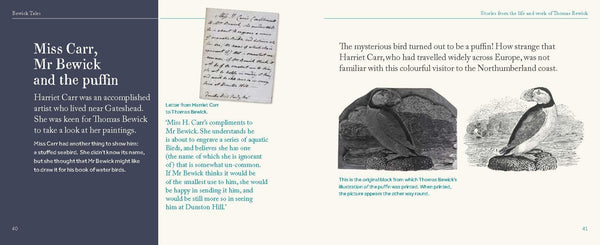 Bewick Tales
Stories from the life and work of Thomas Bewick
Miss Carr,
Mr Bewick
and the puffin
Harriet Carr was an accomplished
artist who lived near Gateshead.
She was keen for Thomas Bewick
to take a look at her paintings.
Miss Carr had another thing to show him:
a stuffed seabird. She didn't know its name,
but she thought that Mr Bewick might like
to draw it for his book of water birds.
Letter from Harriet Carr
to Thomas Bewick.
'Miss H. Carr's compliments to
Mr Bewick. She understands he
is about to engrave a series of aquatic
Birds, and believes she has one
(the name of which she is ignorant
of) that is somewhat un-common.
If Mr Bewick thinks it would be
of the smallest use to him, she would
be happy in sending it him, and
would be still more so in seeing
him at Dunston Hill.'
The mysterious bird turned out to be a puffin! How strange that
Harriet Carr, who had travelled widely across Europe, was not
familiar with this colourful visitor to the Northumberland coast.
This is the original block from which Thomas Bewick's
illustration of the puffin was printed. When printed,
the picture appears the other way round.
40
41